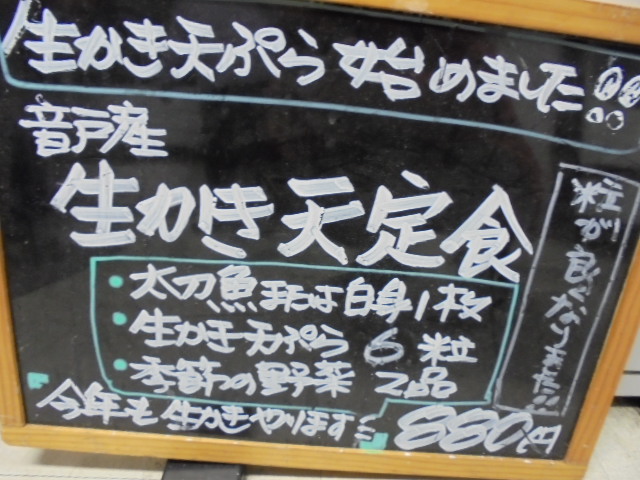 生かき天ぷら始めました!!
音戸産
生かき天定食
・太刀魚または白身1枚
・生かき天ぷら6粒
・季節の野菜2品
今年も生かきやります
880円
粒が良くなりました